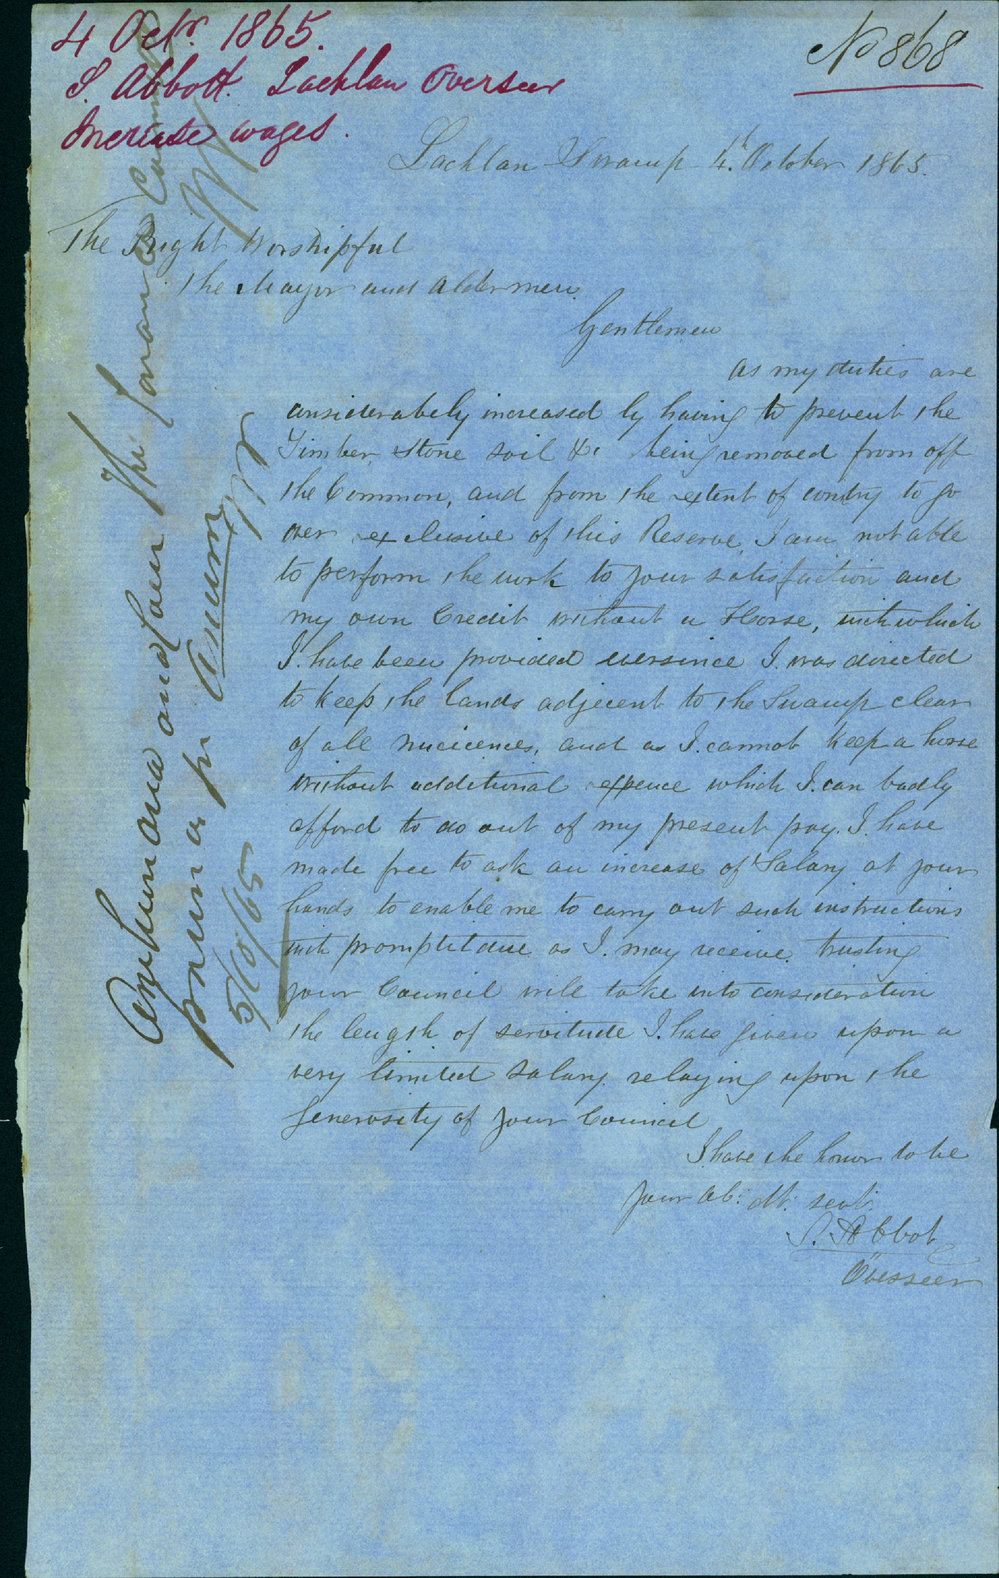 4 Octr. 1865.
S. Abbott. Lachlan Overseer
Increase wages.
No 868
Lachlan Swamp 4th. October 1865.
The Right Worshipful
The Mayor and Aldermen.
Gentlemen
As my duties are
considerabely increased by having to prevent the
Timber, Stone soil &c being removed from off
the Common, and from the extent of contry to go
over exclusive of this Reserve, I am not able
to perform the work to your satisfaction and
my own Credit without a Horse, with which
I. have been provided eversince I. was directed
to keep the lands adjecent to the Swamp clear
of all nucicences, and as I. cannot keep a horse
without additional expence which I. can badly
afford to do out of my present pay. I. have
made free to ask an increase of Salary at your
hands to enable me to carry out such instructions
with promptitdue as I. may receive. trusting
your Council will take into consideration
the length of servitude I. have given upon a
very limited Salary. relaying upon the
Generosity of your Council
I have the honor to be
your ob: dt: sevt:
S. Abbot
Overseer
and laid the
5/10/65